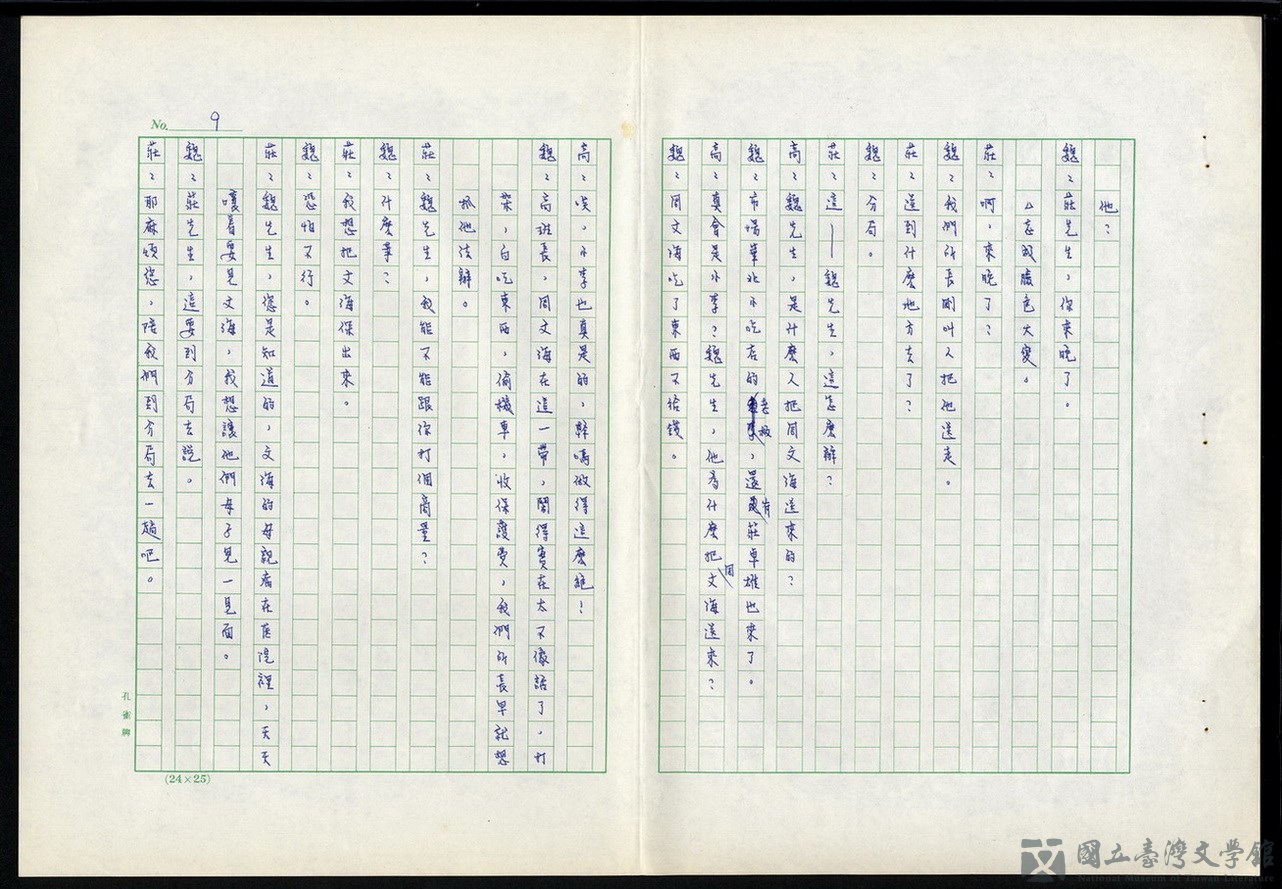 他?
魏:莊先生,你來晚了。
△志成臉色大變。
莊:啊,來晚了?
魏:我們所長剛叫人把他送走。
莊:送到什麼地方去了?
魏:分局。
莊:這——魏先生,這怎麼辦?
高:魏先生,是什麼人把周文海送來的?
魏:市場華北小吃店的老板,還有莊卓雄也來了。
高:真會是小李?魏先生,他為什麼把周文海送來?
魏:周文海吃了東西不給錢。
高:唉,小李也真是的,幹嗎做得這麼絕!
魏:高班長,周文海在這一帶,鬧得實在太不像話了,打
架,白吃東西,偷機車,收保護費,我們所長早就想
抓他法辦。
莊:魏先生,我能不能跟你打個商量?
魏:什麼事?
莊:我想把文海保出來。
魏:恐怕不行。
莊:魏先生,您是知道的,文海的母親病在醫院裡,天天
嚷着要見文海,我想讓他們母子見一見面。
魏:莊先生,這要到分局去說。
莊:那麻煩您,陪我們到分局去一趟吧。
No. 9
孔雀牌
(24×25)
國立臺灣文學館
National Museum of Taiwan Literature